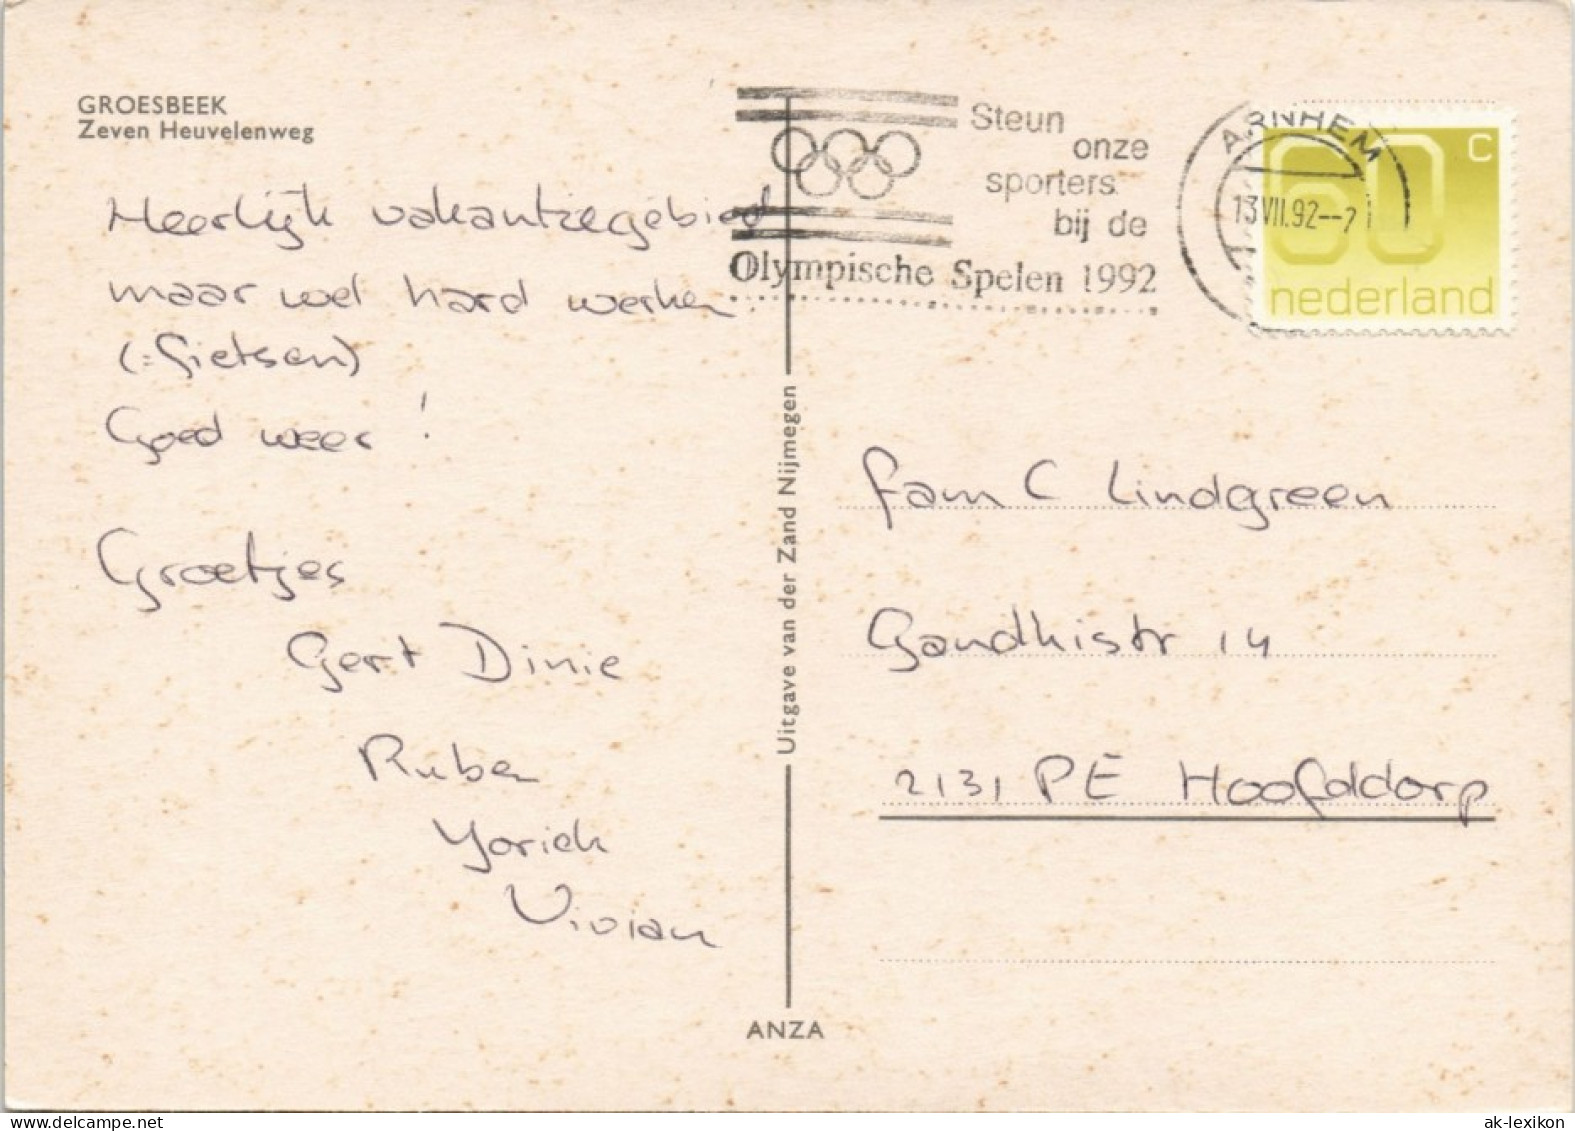 GROESBEEK
Zeven Heuvelenweg
Heerlijk vakantiegebied
maar wel hard werken
(=fietsen)
Goed weer !
Groetjes
Gert Dinie
Ruben
Yorick
Vivian
Uitgave van der Zand Nijmegen
ANZA
Steun
onze
sporters
bij de
Olympische Spelen 1992
ARNHEM
13.VII.92--7
60 C
nederland
Fam C Lindgreen
Gandhistr 14
2131 PE Hoofddorp
www.delcampe.net
ak-lexikon